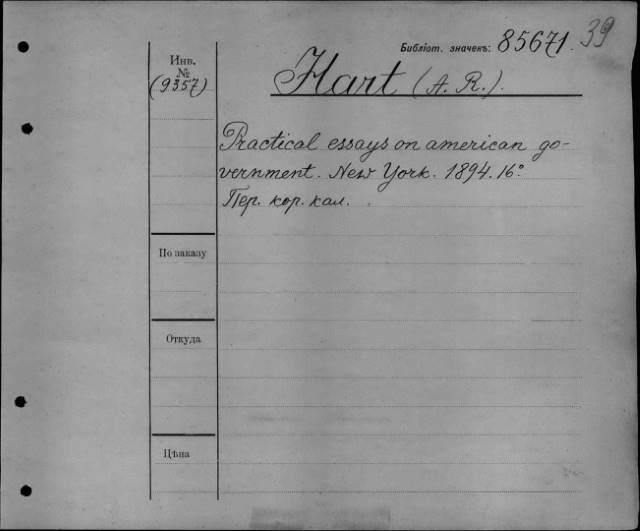 39
Библіот. значекъ: 85671.
Инв.
№
(9357)
Hart (A. R.).
Practical essays on american go-
vernment. New York. 1894. 16°.
Пер. кор. кал.
По заказу
Откуда
Цѣна